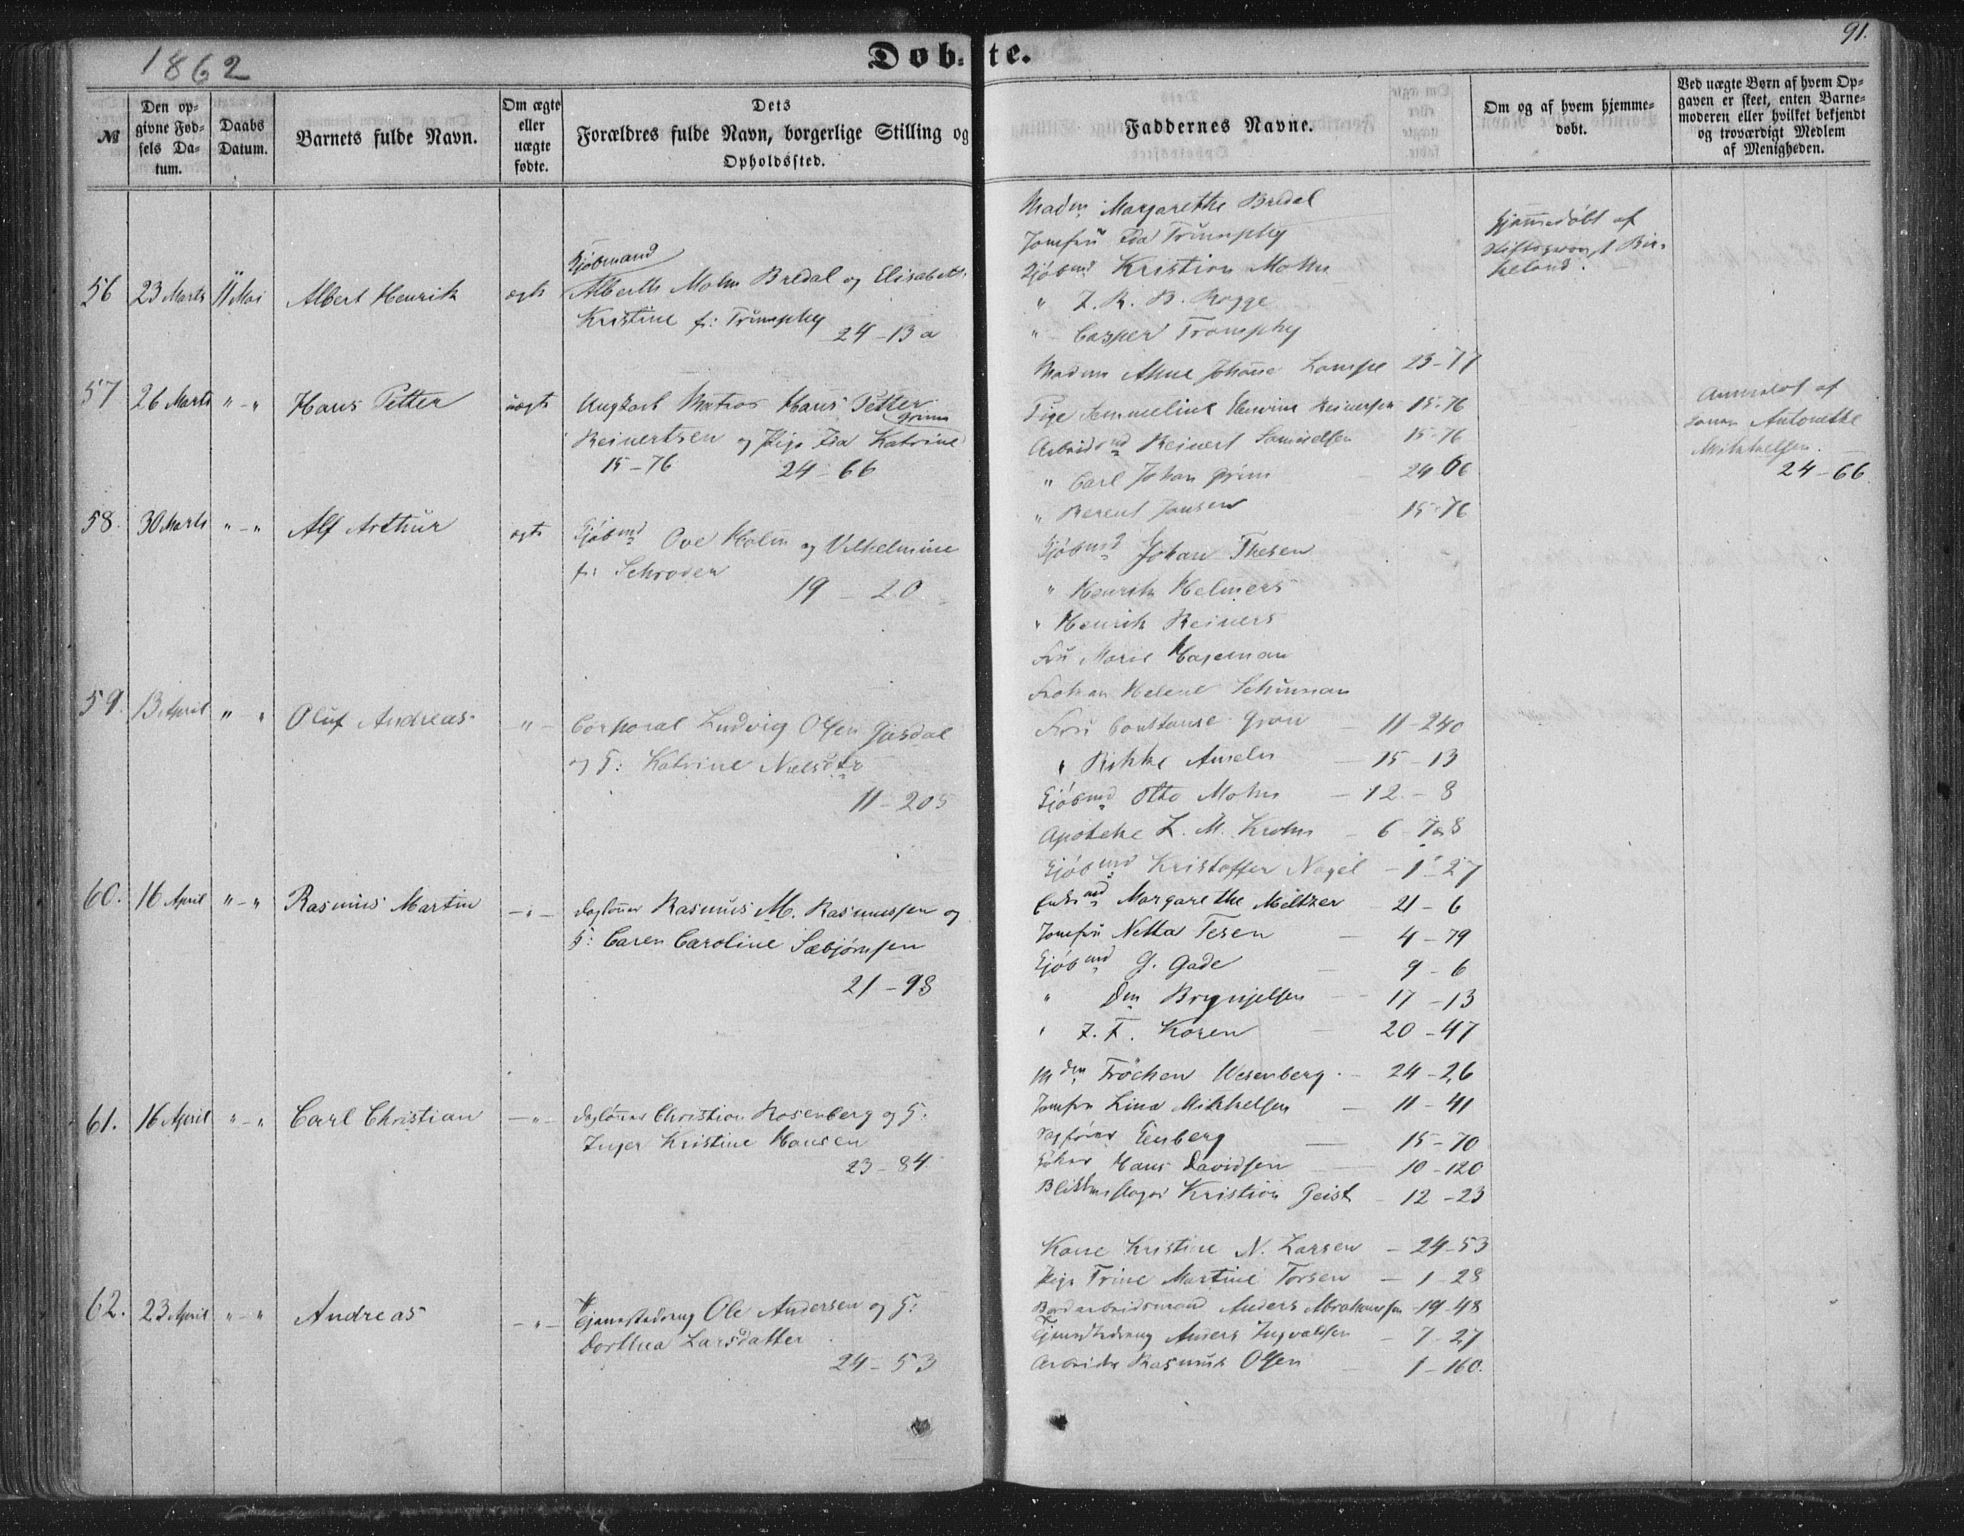 1862
Døbte.
91.
№
Den opgivne Fødsels Datum.
Daabs Datum.
Barnets fulde Navn.
Om ægte eller uægte fødte.
Dets Forældres fulde Navn, borgerlige Stilling og Opholdssted.
Faddernes Navne.
Om og af hvem hjemmedøbt.
Ved uægte Børn af hvem Opgaven er skeet, enten Barnemoderen eller hvilket bekjendt og troværdigt Medlem af Menigheden.
56 23 Marts 11 Mai Albert Henrik ægte
Kjøbmand
Alberth Mohn Bredal og Elisabeth
Kristine f: Trumphy
24-13a
Madm Margarethe Bredal
Jomfru Ida Trumphy
Kjøbmd Kristian Mohn
" Z. R. B. Rogge
" Casper Trumphy
Hjemmedøbt af
Birkeland.
57 26 Marts " - " Hans Petter uægte
Ungkarl Matros Hans Petter
Reinertsen og Pige Ida Katrine Grim
15-76 24-66
Madm Anne Johanne Lampe 23-77
Pige Emmeline Reinertsen 15-76
Arbeidsmd Reinert Samuelsen 15-76
" Carl Johan Grim 24 66
" Berent Jansen 15-76
Anmeldt af
Antonette
Mikkelsen.
24-66
58. 30 Marts " - " Alf Arthur ægte
Kjøbmd Ove Holm og Vilhelmine
f: Schrøder
19 - 20
Kjøbmd Johan Thesen
" Henrik Helmers
" Henrik Reimers
Fru Marie Hageman
Frøken Helene Schuman
59. 13 April " " Oluf Andreas " -
Corporal Ludvig Olsen Gjesdal
og H: Katrine Nielsdtr
11-205
Fru Constanse Gran - 11-240
" Rikke Ameln - 15-13
Kjøbmd Otto Mohn - 12-8
Apotheke Z. M. Krohn - 6-7a8
Kjøbmd Kristoffer Nagel - 1-27
60. 16 April " - " Rasmus Martin - " -
Dagløner Rasmus M. Rasmussen og
H: Caren Caroline Sæbjørnsen
21-98
Margarethe Meltzer - 21-6
Jomfru Netta Tesen - 4-79
Kjøbmd G. Gade - 9-6
" Dm Brynjelsen - 17-13
" Z. F. Koren - 20-47
61. 16 April " - " Carl Christian - " -
Dagløner Christian Rosenberg og H:
Inger Kristine Hansen
23-84
Mdm Frøchen Wesenberg - 24-26
Jomfru Lina Mikkelsen - 11-41
Enberg - 15-70
Hans Davidsen - 10-120
Blikkenslager Kristian Geist - 12-23
62. 23 April " - " Andreas - " -
Tjenestedreng Ole Andersen og H:
Dorthea Larsdatter
24-53
Kone Kristine N. Larsen - 24-53
Pige Trine Martine Torsen - 1-28
Bordarbeidsmand Anders Abrahamsen - 19-48
Tjenestedreng Anders Ingvaldsen - 7-27
Arbeider Rasmus Olsen - 1-160.